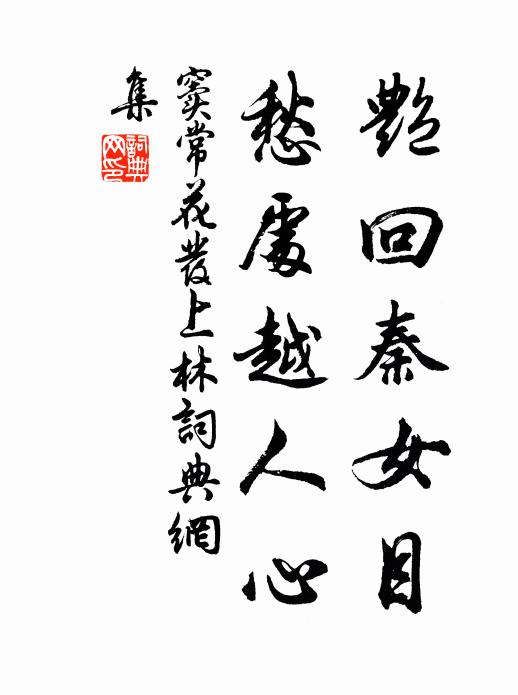 艷回秦女目
愁處越人心
竇常花發上林詞典網
集
詞典
网印